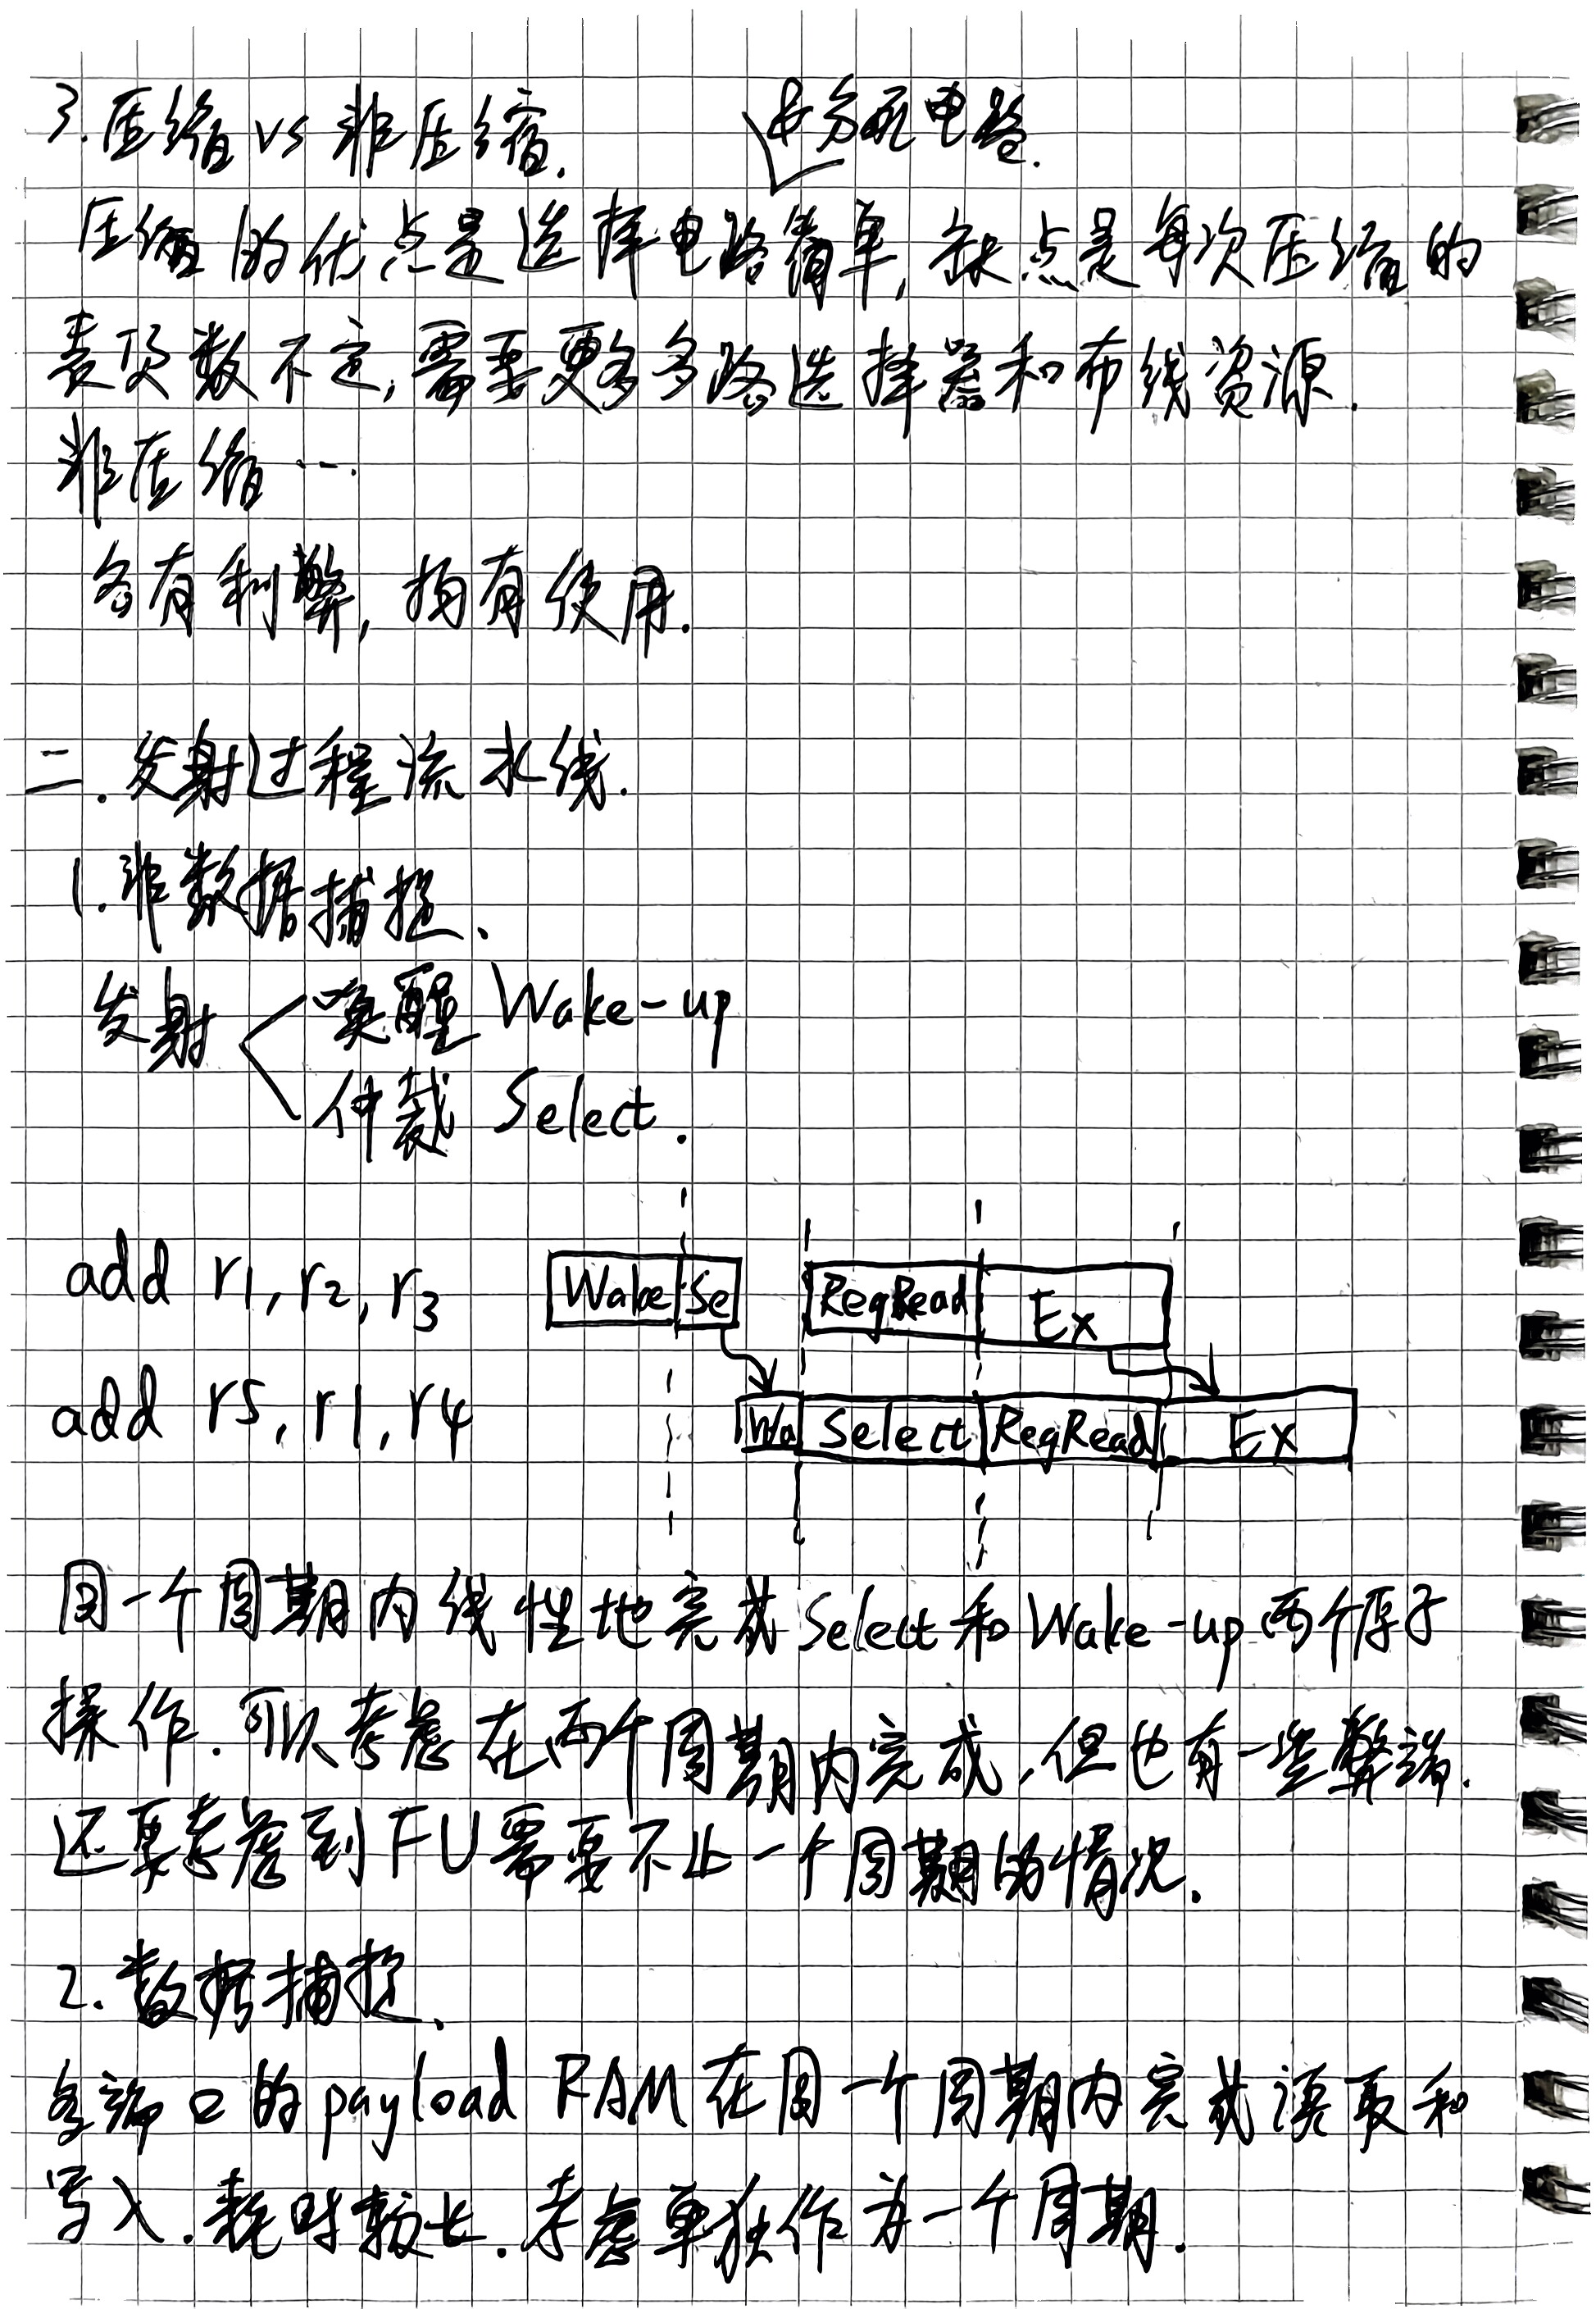 3. 压缩 vs 非压缩.
与分配电路.
压缩的优点是选择电路简单, 缺点是每次压缩的
表项数不定, 需要更多多路选择器和布线资源.
非压缩…
各有利弊, 均有使用.
二. 发射过程流水线.
1. 非数据捕捉、
发射 唤醒 Wake-up
仲裁 Select.
add r1, r2, r3 Wake Se RegRead Ex
add r5, r1, r4 Wa Select RegRead Ex
同一个周期内线性地完成 Select 和 Wake-up 两个原子
操作. 可以考虑在两个周期内完成, 但也有一些弊端.
还要考虑到 FU 需要不止一个周期的情况.
2. 数据捕捉、
多端口的 payload RAM 在同一个周期内完成读取和
写入. 耗时较长. 考虑单独作为一个周期.